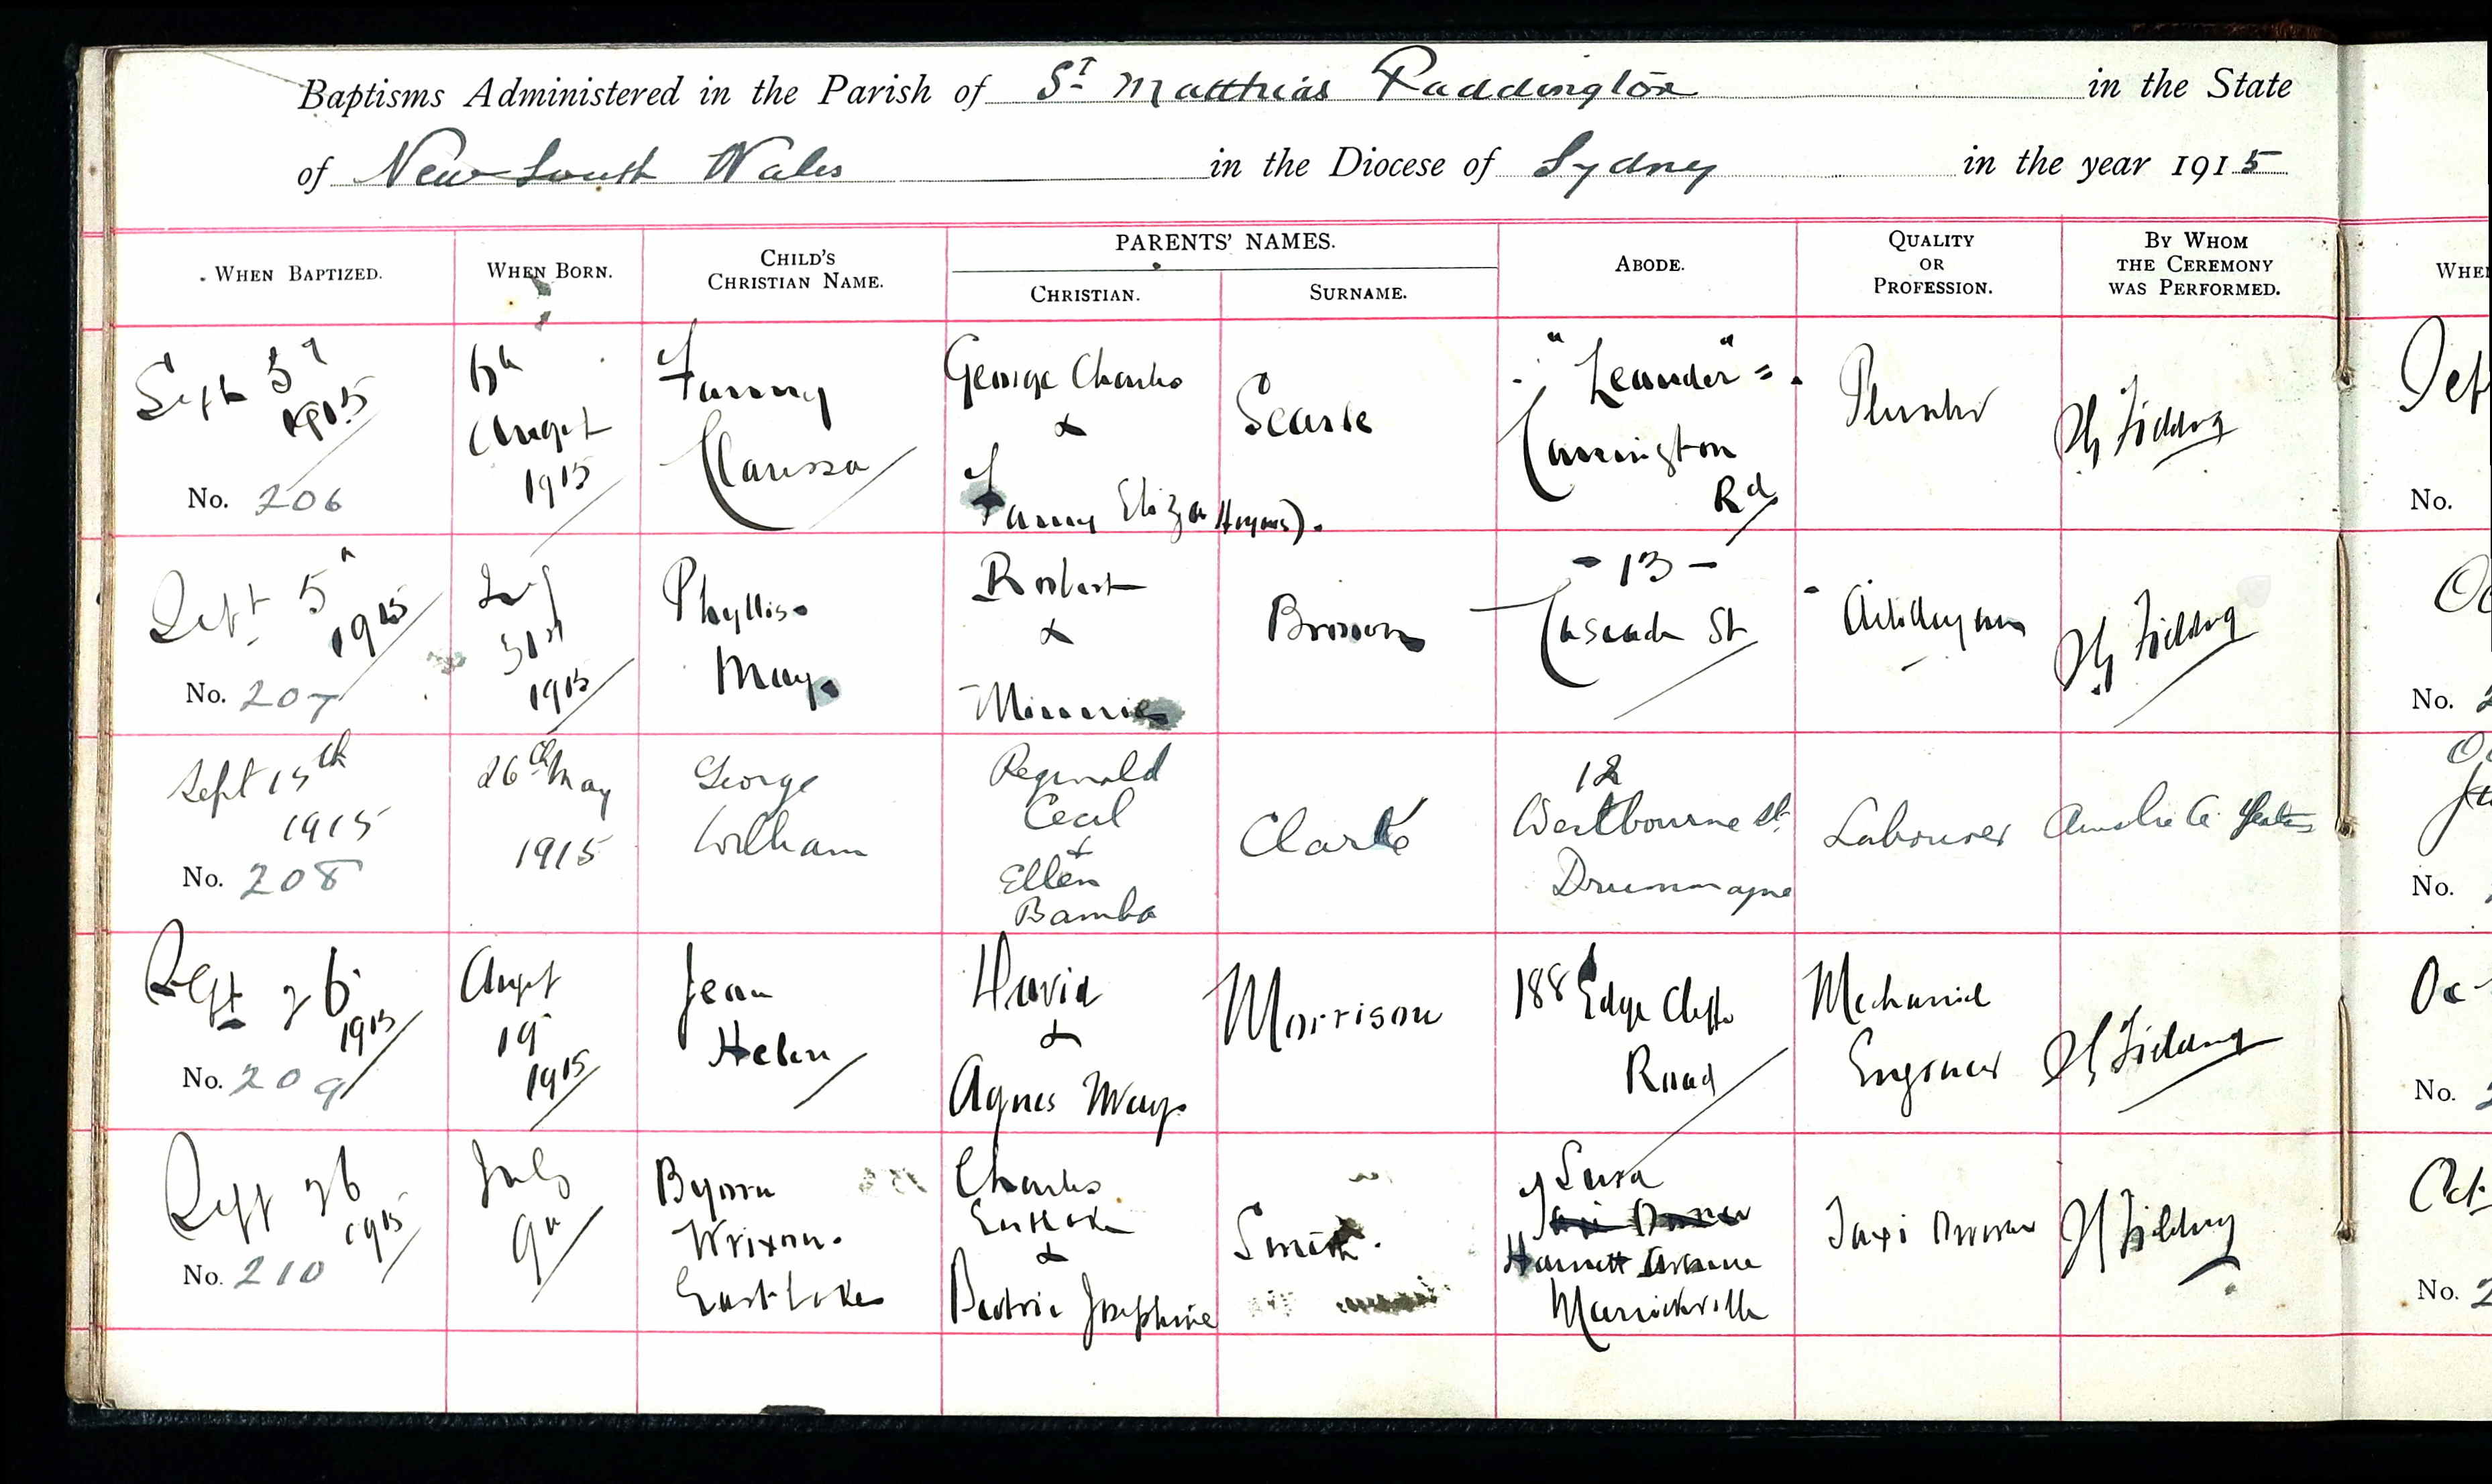 Baptisms Administered in the Parish of St Matthias Paddington in the State
of New South Wales in the Diocese of Sydney in the year 1915
WHEN BAPTIZED.
WHEN BORN.
CHILD'S
CHRISTIAN NAME.
PARENTS' NAMES.
CHRISTIAN.
SURNAME.
ABODE.
QUALITY
OR
PROFESSION.
BY WHOM
THE CEREMONY
WAS PERFORMED.
Sept 5th
1915
No. 206
August
1915
Fanny
Clarissa
George Charles
&
Fanny Eliza
Searle
"Leander"
Carrington
Rd
Plumber
Fielding
Sept 5th
1915
No. 207
July
31st
1915
Phyllis
May
Robert
&
Minnie
Brown
- 13 -
Cascade St
Fielding
Sept 15th
1915
No. 208
26th May
1915
George
William
Reginald
Cecil
&
Ellen
Bamba
Clarke
12
Westbourne St.
Drummoyne
Labourer
Sept 26
1915
No. 209
Augst
19
1915
Jean
Helen
David
&
Agnes May
Morrison
188 Edge Cliffe
Road
Mechanical
Engineer
Fielding
Sept 26
1915
No. 210
July
9th
Byron
Wrixon
Eastlake
Charles
Eastlake
&
Beatrice Josephine
Smith.
Taxi Driver
Harnett Avenue
Marrickville
Taxi Driver
Fielding
WHEN
Oct
No.
No.
No.
Oc
No.
Oct
No. 2